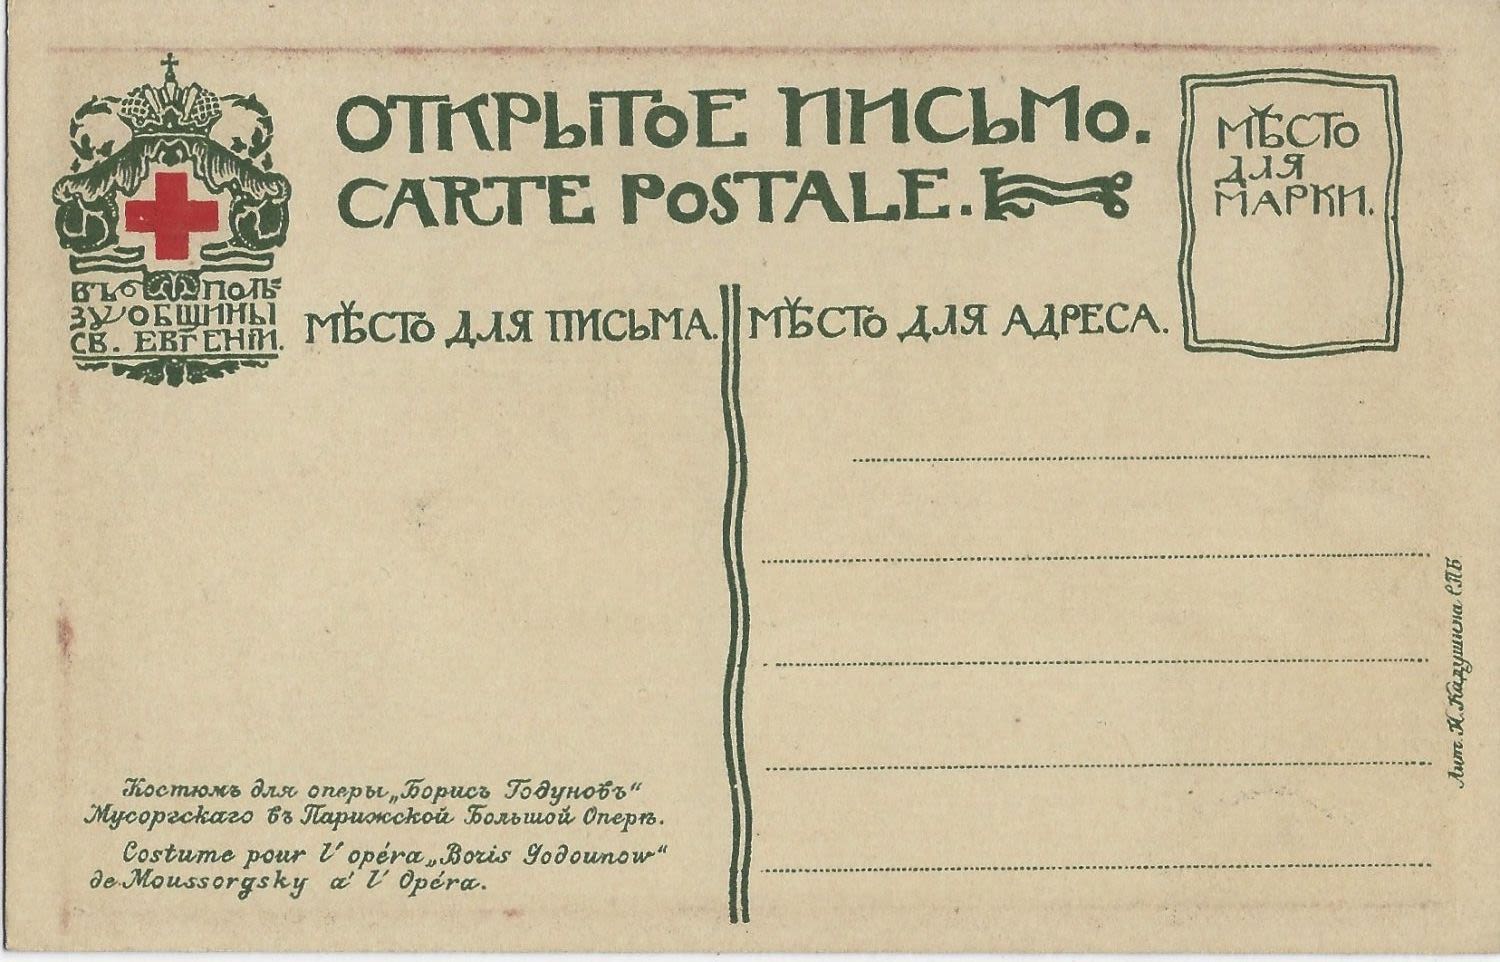 ОТКРЫТОЕ ПИСЬМО.
CARTE POSTALE.
МѢСТО
ДЛЯ
МАРКИ.
ВЪ ПОЛЬ-
ЗУ ОБЩИНЫ
СВ. ЕВГЕНІИ.
МѢСТО ДЛЯ ПИСЬМА.
МѢСТО ДЛЯ АДРЕСА.
Костюмъ для оперы „Борисъ Годуновъ“
Мусоргскаго въ Парижской Большой Оперѣ.
Costume pour l' opéra „Boris Godounow“
de Moussorgsky a' l' Opéra.
Лит. Н. Кадушина СПБ